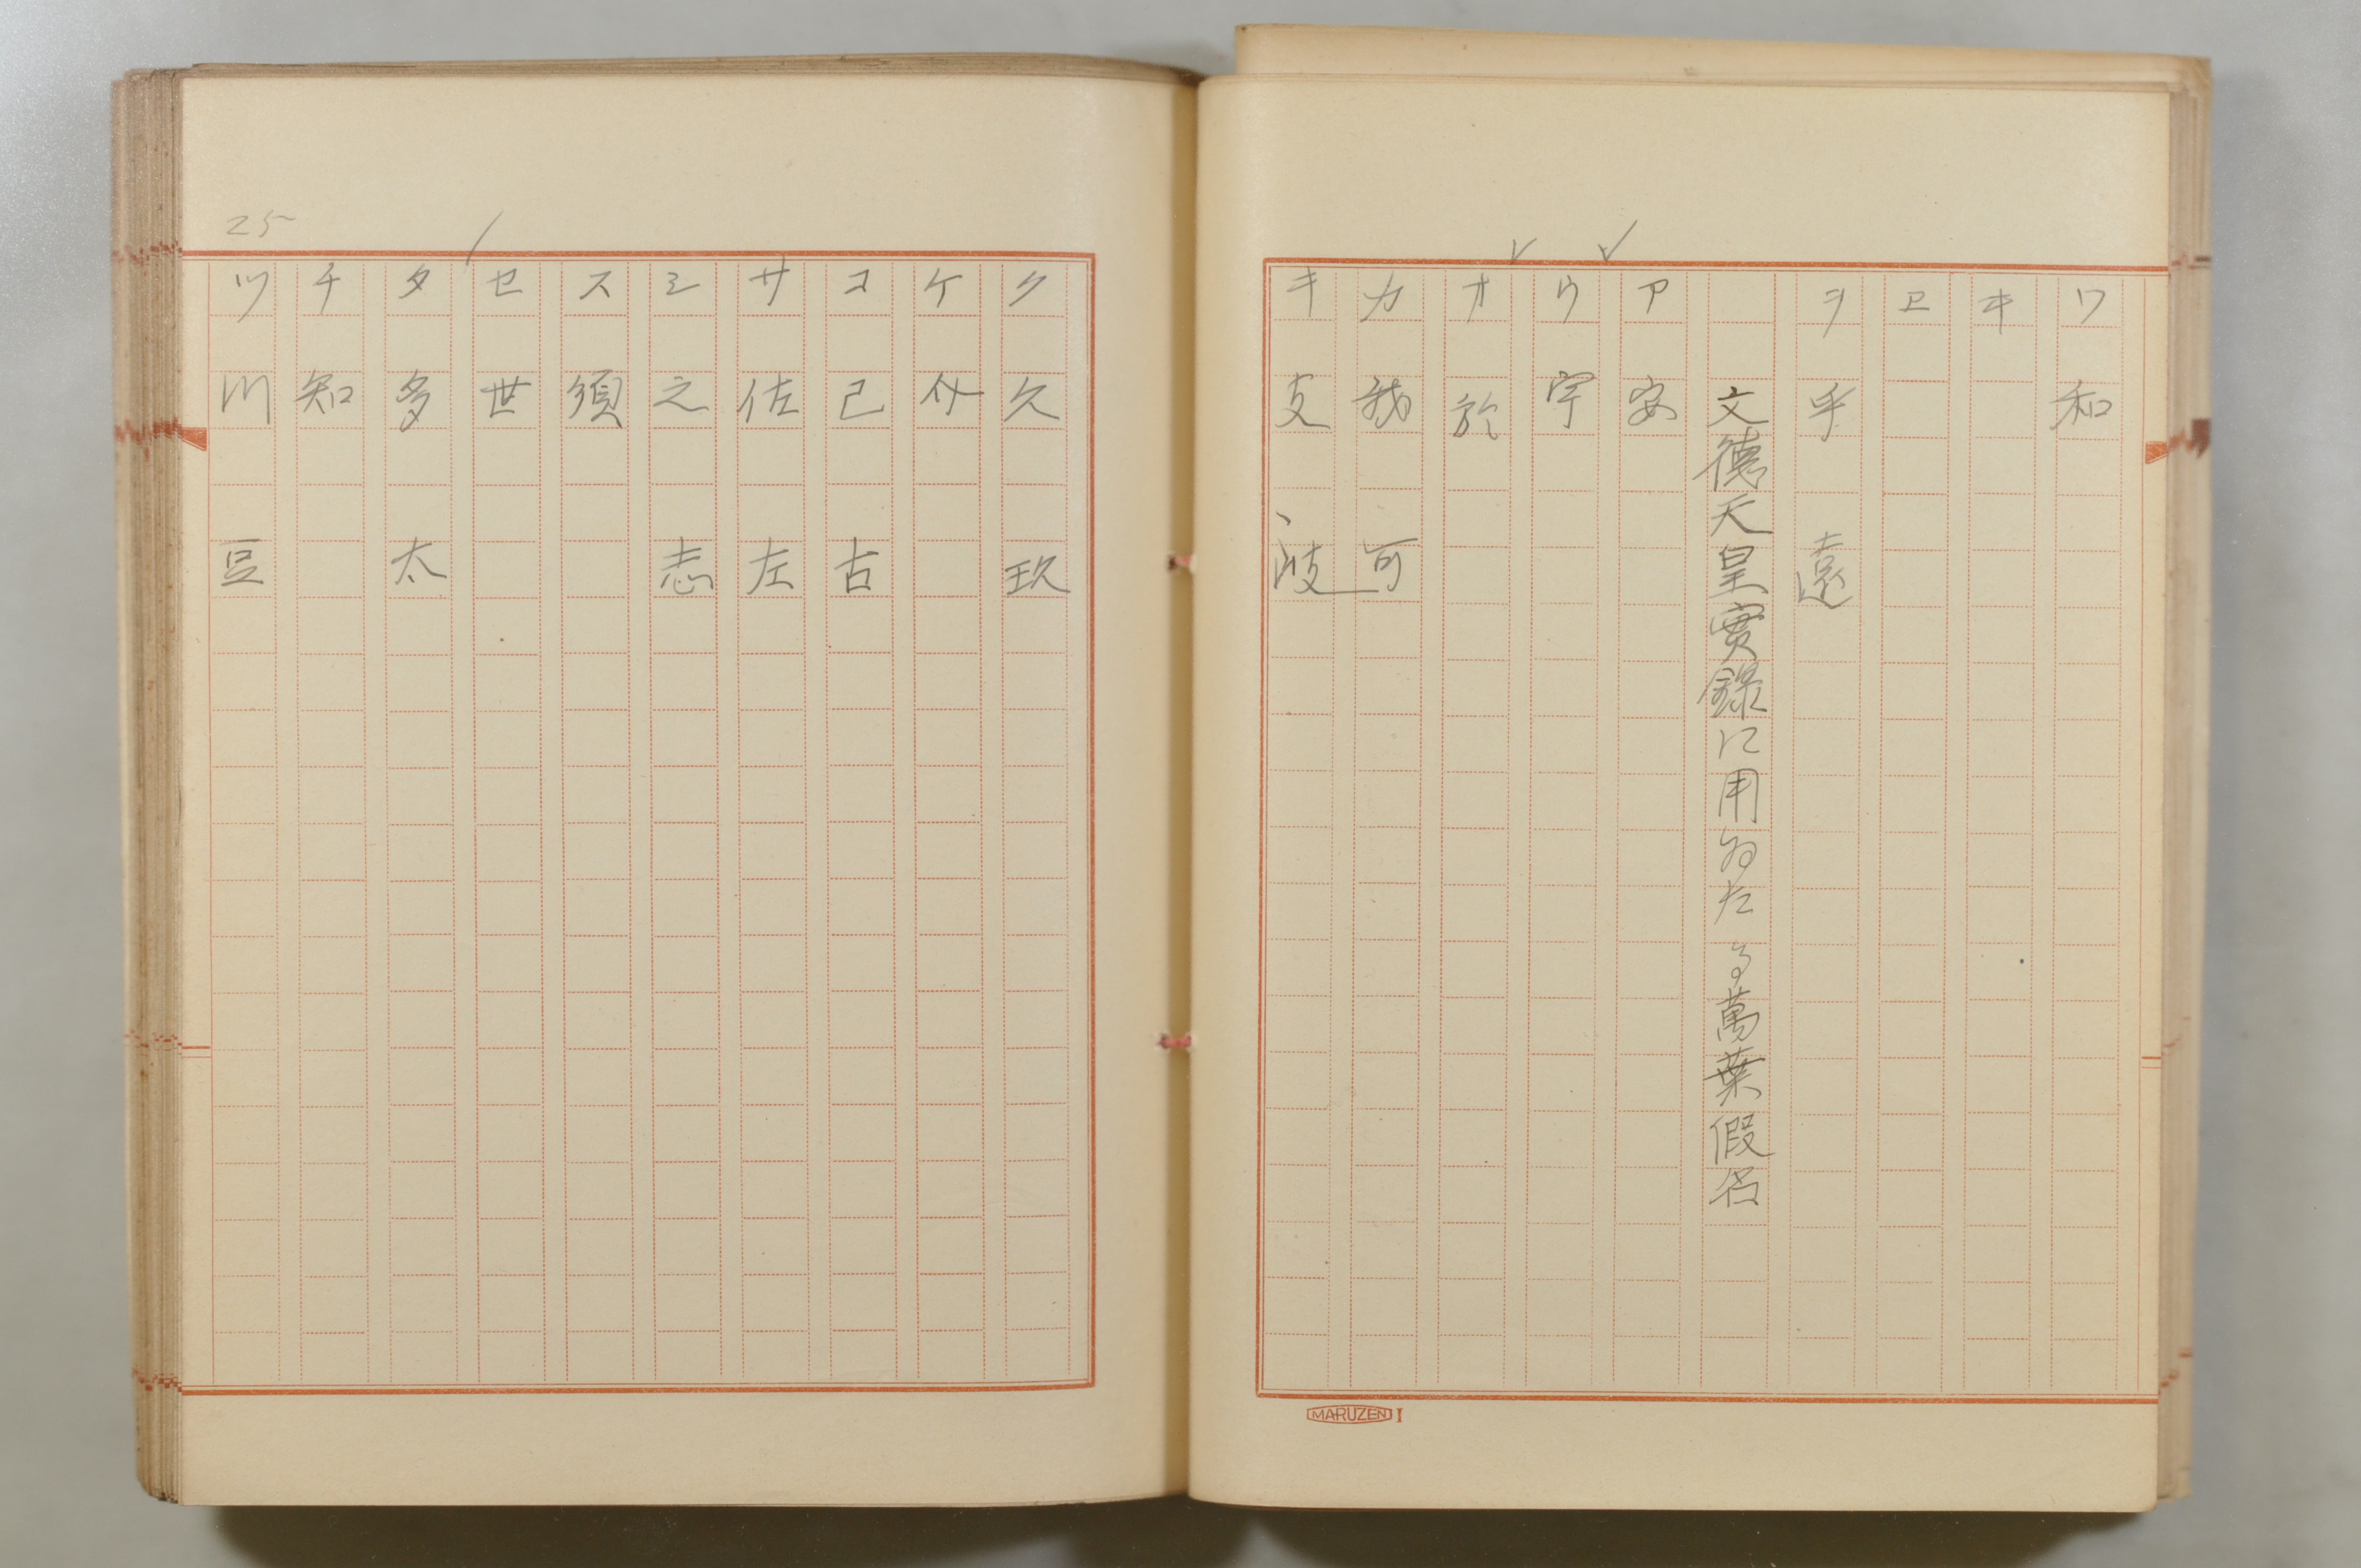 ワ 和
ヰ
ヱ
ヲ 乎 遠
文德天皇實錄に用ゐたる萬葉假名
ア 安
ウ 宇
オ 於
カ 我 可
キ 支 岐
MARUZEN I
ク 久 玖
ケ 介
コ 己 古
サ 佐 左
シ 之 志
ス 須
セ 世
タ 多 太
チ 知
ツ 川 豆
25